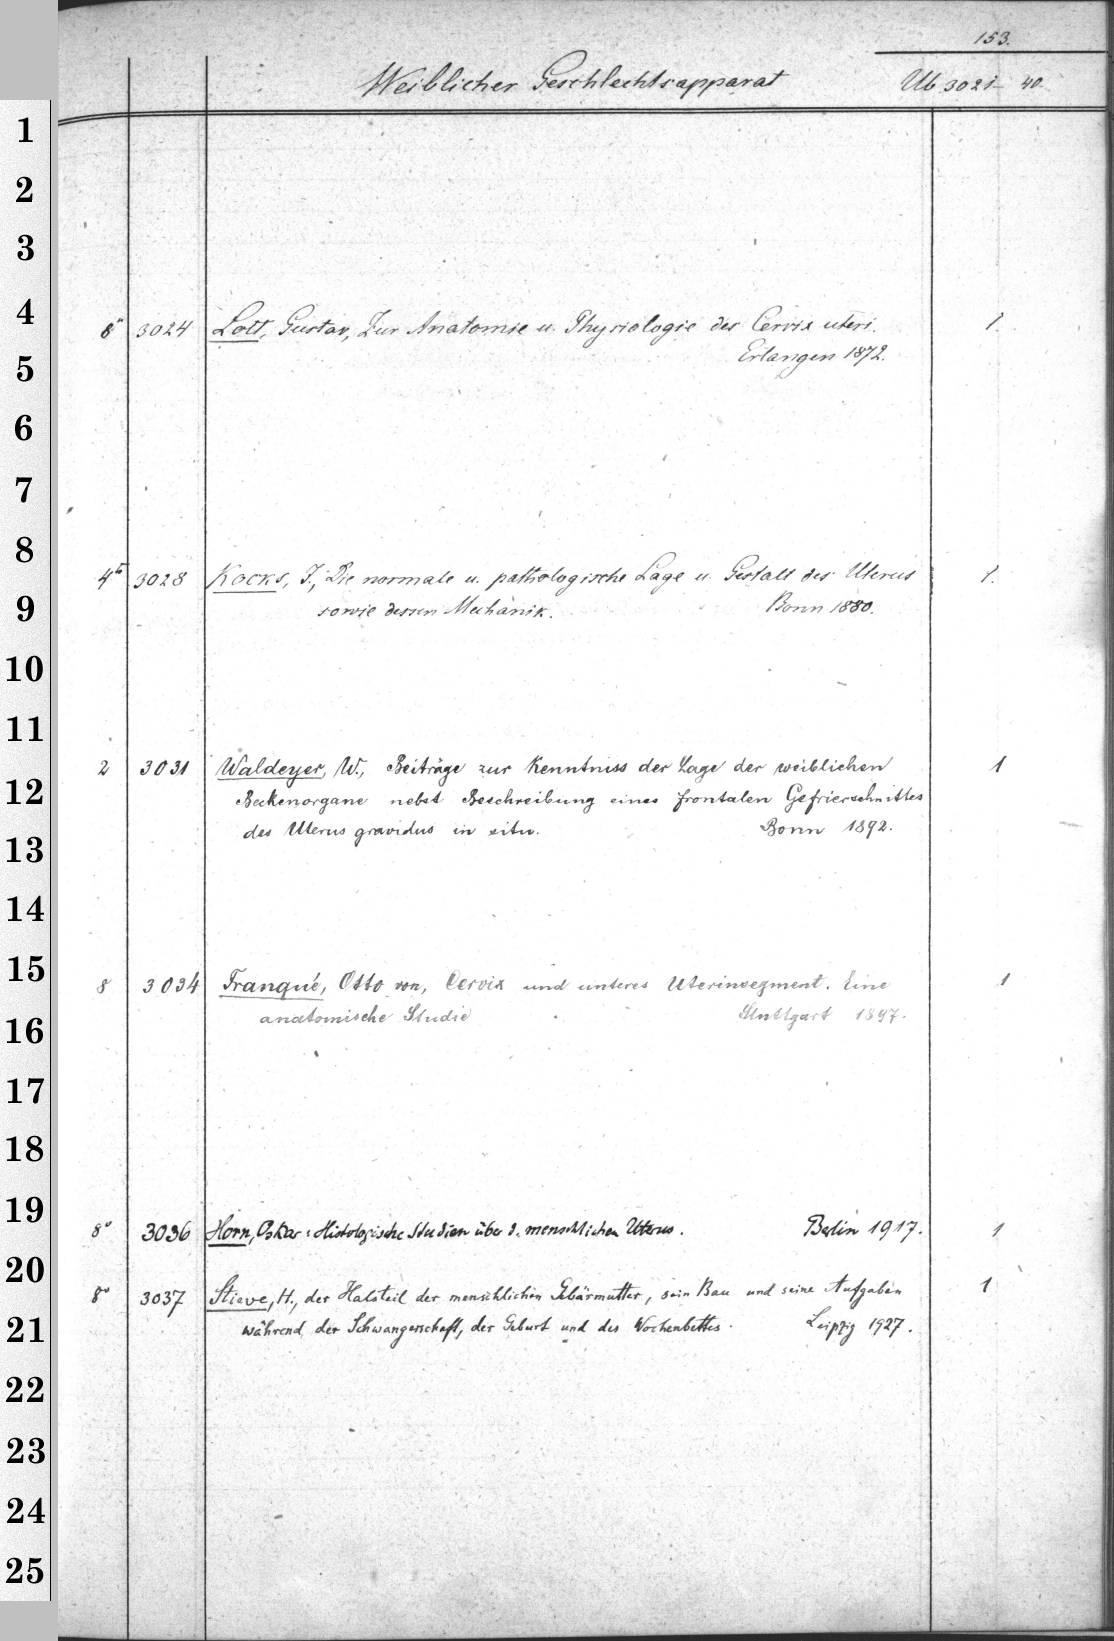 153.
Weiblicher Geschlechtsapparat Ub 3021-40
1
2
3
4
5
6
7
8
9
10
11
12
13
14
15
16
17
18
19
20
21
22
23
24
25
8° 3024 Lott, Gustav, Zur Anatomie u. Physiologie der Cervix uteri. 1.
Erlangen 1872.
4to 3028 Kocks, J., Die normale u. pathologische Lage u. Gestalt des Uterus 1.
sowie dessen Mechanik. Bonn 1880.
2 3031 Waldeyer, W., Beiträge zur Kenntniss der Lage der weiblichen 1
Beckenorgane nebst Beschreibung eines frontalen Gefrierschnittes
des Uterus gravidus in situ. Bonn 1892.
8 3034 Franqué, Otto von, Cervix und unteres Uterinsegment. Eine 1
anatomische Studie Stuttgart 1897.
8° 3036 Horn, Oskar: Histologische Studien über d. menschlichen Uterus. Berlin 1917. 1
8° 3037 Stieve, H., der Halsteil der menschlichen Gebärmutter, sein Bau und seine Aufgaben 1
während der Schwangerschaft, der Geburt und des Wochenbettes. Leipzig 1927.